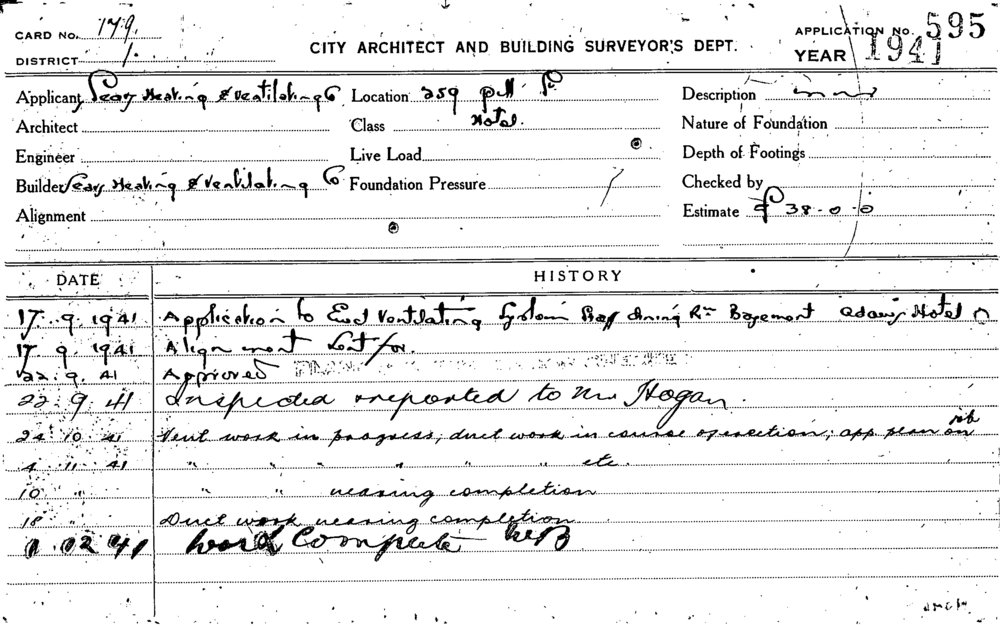 CARD No. 179.
DISTRICT 1.
CITY ARCHITECT AND BUILDING SURVEYOR'S DEPT.
APPLICATION No. 595
YEAR 1941
Applicant Heating & Ventilating Co
Location 259 Pitt St
Description
Architect
Class Hotel.
Nature of Foundation
Engineer
Live Load
Depth of Footings
Builder Heating & Ventilating Co
Foundation Pressure
Checked by
Alignment
Estimate £ 38-0-0
DATE HISTORY
17.9.1941 Application to Ventilating System dining Rm Basement Adams Hotel
17 9. 1941 Alignment for.
22.9.41 Approved
22.9.41 Inspected & reported to Mr Hogan.
24.10.41 Vent work in progress, duct work in course of erection; app. plan on job
4.11.41 " " " " " " etc.
10 " " " nearing completion
18 " Duct work nearing completion
1 12 41 Work Complete